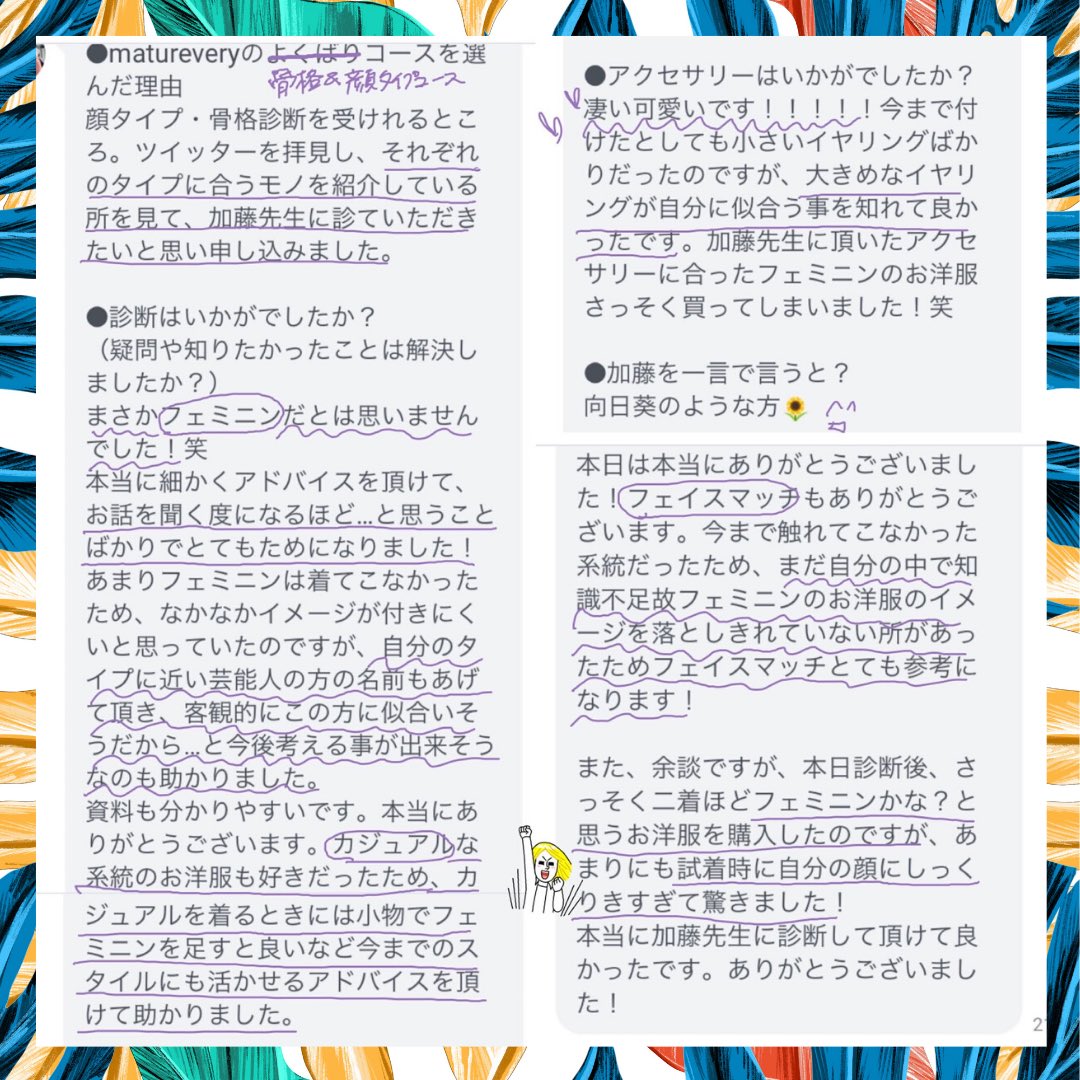 ●matureveryのよくばりコースを選
骨格&顔タイプコース
んだ理由
顔タイプ・骨格診断を受けれるとこ
ろ。ツイッターを拝見し、それぞれ
のタイプに合うモノを紹介している
所を見て、加藤先生に診ていただき
たいと思い申し込みました。
●診断はいかがでしたか？
（疑問や知りたかったことは解決し
ましたか？）
まさかフェミニンだとは思いません
でした！笑
本当に細かくアドバイスを頂けて、
お話を聞く度になるほど…と思うこと
ばかりでとてもためになりました！
あまりフェミニンは着てこなかった
ため、なかなかイメージが付きにく
いと思っていたのですが、自分のタ
イプに近い芸能人の方の名前もあげ
て頂き、客観的にこの方に似合いそ
うだから…と今後考える事が出来そう
なのも助かりました。
資料も分かりやすいです。本当にあ
りがとうございます。カジュアルな
系統のお洋服も好きだったため、カ
ジュアルを着るときには小物でフェ
ミニンを足すと良いなど今までのス
タイルにも活かせるアドバイスを頂
けて助かりました。
●アクセサリーはいかがでしたか？
凄い可愛いです！！！！！今まで付
けたとしても小さいイヤリングばか
りだったのですが、大きめなイヤリ
ングが自分に似合う事を知れて良か
ったです。加藤先生に頂いたアクセ
サリーに合ったフェミニンのお洋服
さっそく買ってしまいました！笑
●加藤を一言で言うと？
向日葵のような方🌻
本日は本当にありがとうございまし
た！フェイスマッチもありがとうご
ざいます。今まで触れてこなかった
系統だったため、まだ自分の中で知
識不足故フェミニンのお洋服のイメ
ージを落としきれていない所があっ
たためフェイスマッチとても参考に
なります！
また、余談ですが、本日診断後、さ
っそく二着ほどフェミニンかな？と
思うお洋服を購入したのですが、あ
まりにも試着時に自分の顔にしっく
りきすぎて驚きました！
本当に加藤先生に診断して頂けて良
かったです。ありがとうございまし
た！